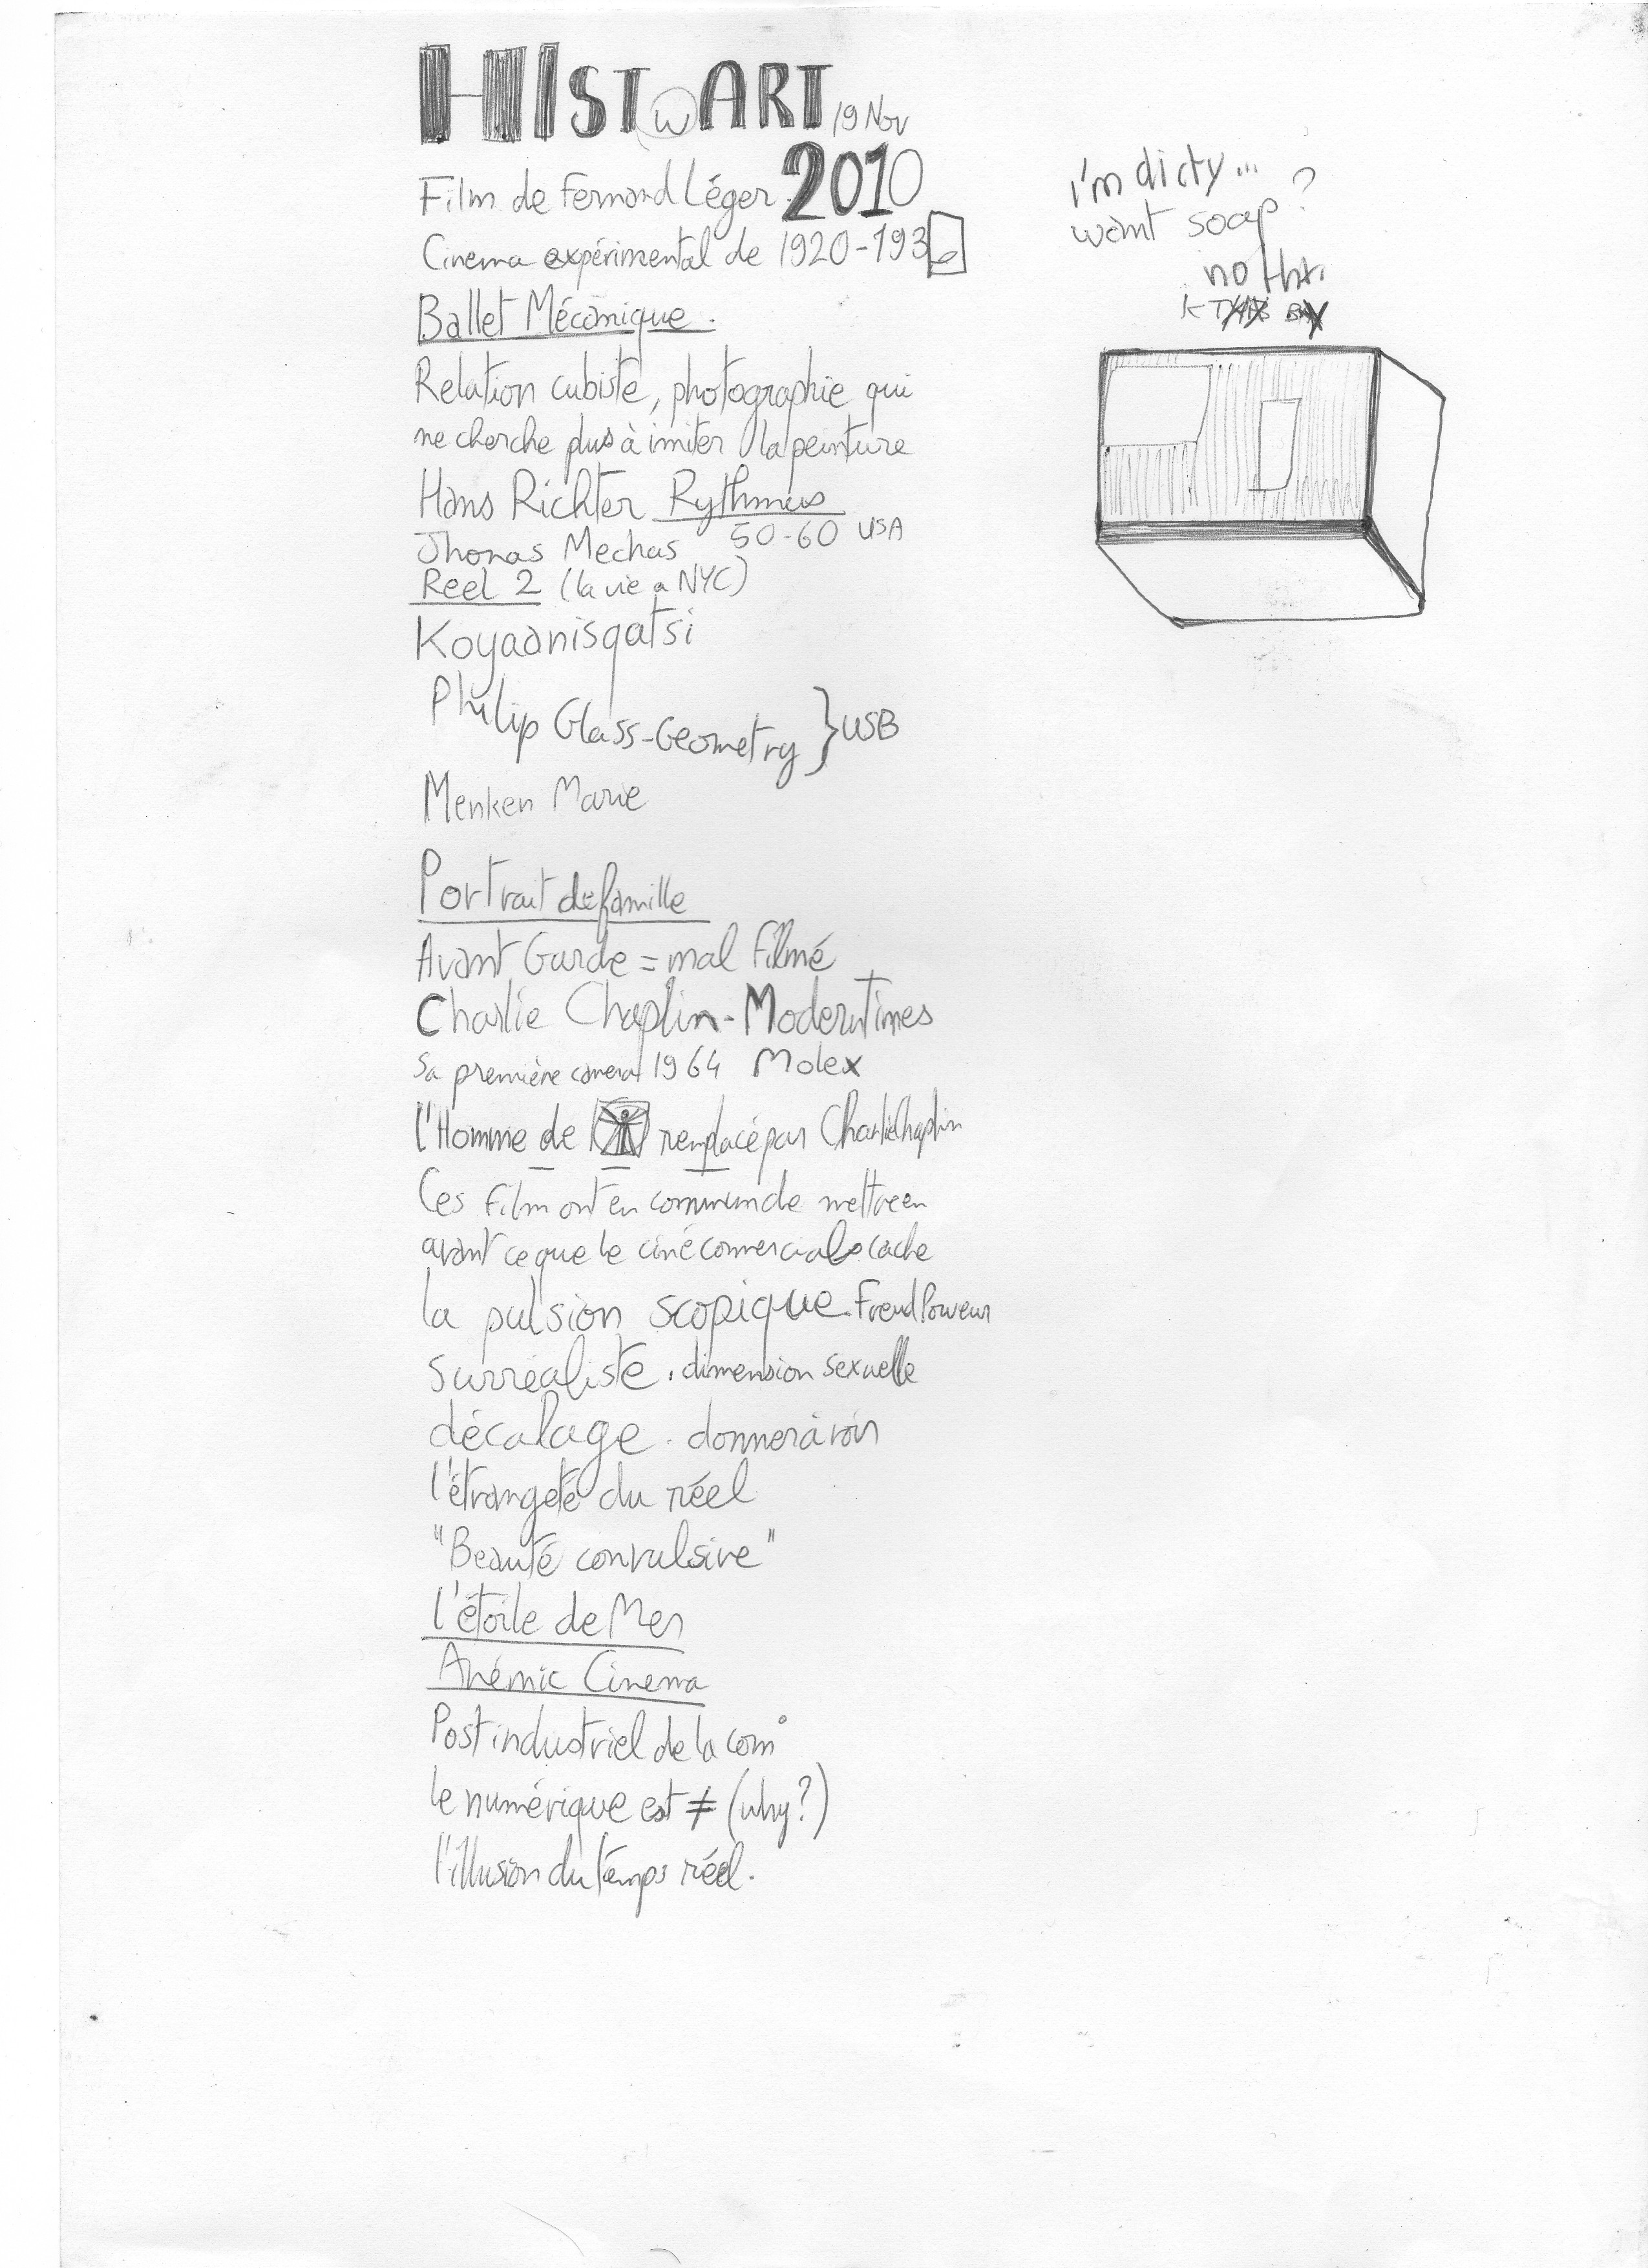 HIST W ART 19 Nov
2010
Film de Fernand Léger.
Cinema expérimental de 1920-193
Ballet Mécanique.
Relation cubiste, photographie qui
ne cherche plus à imiter la peinture
Hans Richter Rythmus
Jhonas Mechas 50-60 USA
Reel 2 (la vie a NYC)
Koyaanisqatsi
Philip Glass-Geometry } USB
Menken Marie
Portrait de famille
Avant Garde = mal filmé
Charlie Chaplin-Modern Times
Sa première camera 1964 Molex
l'Homme de remplacé par Charlie Chaplin
Ces film ont en commun de mettre en
avant ce que le ciné comercial cache
la pulsion scopique. Freud
surréaliste. dimension sexuelle
décalage. donner à voir
l'étrangeté du réel
"Beauté convulsive"
l'étoile de Mer
Anémic Cinema
Post industriel de la com°
le numérique est ≠ (why?)
l'illusion du temps réel.
i'm dirty...
want soap?
no thx.